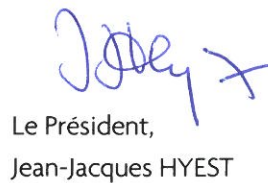 Le Président,
Jean-Jacques HYEST